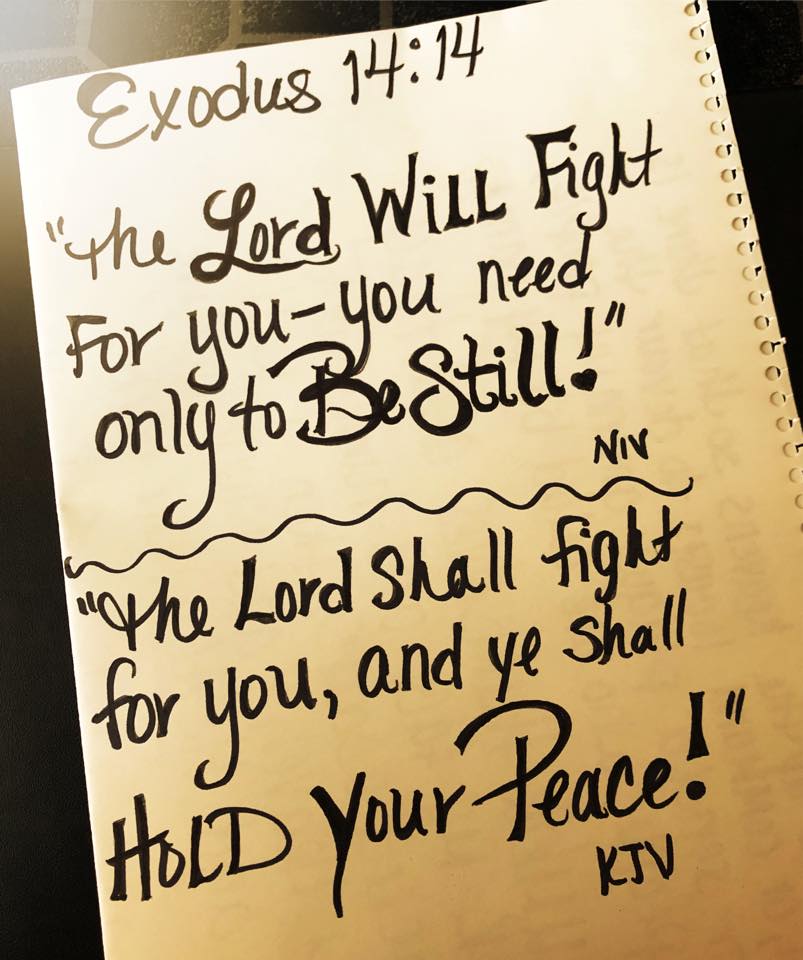 Exodus 14:14
"The Lord Will Fight
For you—you need
only to Be Still!"
NIV
"The Lord Shall fight
for you, and ye shall
HOLD Your Peace!"
KJV